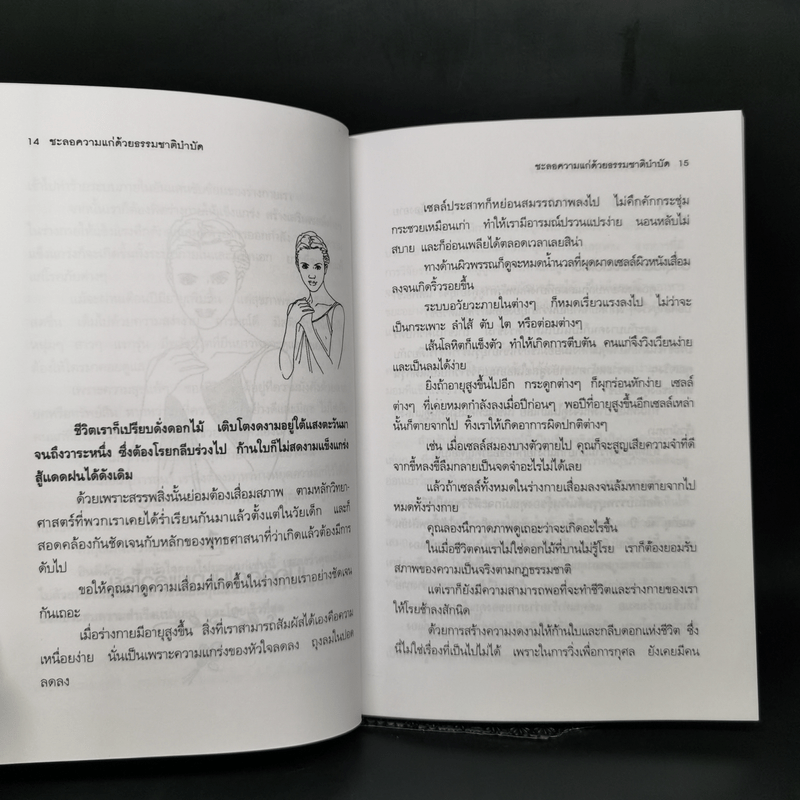 14 ชะลอความแก่ด้วยธรรมชาติบำบัด
ชีวิตเราก็เปรียบดั่งดอกไม้ เติบโตงดงามอยู่ใต้แสงตะวันมา
จนถึงวาระหนึ่ง ซึ่งต้องโรยกลีบร่วงไป ก้านใบก็ไม่สดงามแข็งแกร่ง
สู้แดดฝนได้ดังเดิม
ด้วยเพราะสรรพสิ่งนั้นย่อมต้องเสื่อมสภาพ ตามหลักวิทยา-
ศาสตร์ที่พวกเราเคยได้ร่ำเรียนกันมาแล้วตั้งแต่ในวัยเด็ก และก็
สอดคล้องกันชัดเจนกับหลักของพุทธศาสนาที่ว่าเกิดแล้วต้องมีการ
ดับไป
ขอให้คุณมาดูความเสื่อมที่เกิดขึ้นในร่างกายเราอย่างชัดเจน
กันเถอะ
เมื่อร่างกายมีอายุสูงขึ้น สิ่งที่เราสามารถสัมผัสได้เองคือความ
เหนื่อยง่าย นั่นเป็นเพราะความแกร่งของหัวใจลดลง ถุงลมในปอด
ลดลง
ชะลอความแก่ด้วยธรรมชาติบำบัด 15
เซลล์ประสาทก็หย่อนสมรรถภาพลงไป ไม่คึกคักกระชุ่ม
กระชวยเหมือนเก่า ทำให้เรามีอารมณ์ปรวนแปรง่าย นอนหลับไม่
สบาย และก็อ่อนเพลียได้ตลอดเวลาเลยสิน่า
ทางด้านผิวพรรณก็ดูจะหมดน้ำนวลที่ผุดผาดเซลล์ผิวหนังเสื่อม
ลงจนเกิดริ้วรอยขึ้น
ระบบอวัยวะภายในต่างๆ ก็หมดเรี่ยวแรงลงไป ไม่ว่าจะ
เป็นกระเพาะ ลำไส้ ตับ ไต หรือต่อมต่างๆ
เส้นโลหิตก็แข็งตัว ทำให้เกิดการตีบตัน คนแก่จึงวิงเวียนง่าย
และเป็นลมได้ง่าย
ยิ่งถ้าอายุสูงขึ้นไปอีก กระดูกต่างๆ ก็ผุกร่อนหักง่าย เซลล์
ต่างๆ ที่เคยหมดกำลังลงเมื่อปีก่อนๆ พอปีที่อายุสูงขึ้นอีกเซลล์เหล่า
นั้นก็ตายจากไป ทิ้งเราให้เกิดอาการผิดปกติต่างๆ
เช่น เมื่อเซลล์สมองบางตัวตายไป คุณก็จะสูญเสียความจำที่ดี
จากขี้หลงขี้ลืมกลายเป็นจดจำอะไรไม่ได้เลย
แล้วถ้าเซลล์ทั้งหมดในร่างกายเสื่อมลงจนล้มหายตายจากไป
หมดทั้งร่างกาย
คุณลองนึกวาดภาพดูเถอะว่าจะเกิดอะไรขึ้น
ในเมื่อชีวิตคนเราไม่ใช่ดอกไม้ที่บานไม่รู้โรย เราก็ต้องยอมรับ
สภาพของความเป็นจริงตามกฎธรรมชาติ
แต่เราก็ยังมีความสามารถพอที่จะทำชีวิตและร่างกายของเรา
ให้โรยช้าลงสักนิด
ด้วยการสร้างความงดงามให้ก้านใบและกลีบดอกแห่งชีวิต ซึ่ง
นี่ไม่ใช่เรื่องที่เป็นไปไม่ได้ เพราะในการวิ่งเพื่อการกุศล ยังเคยมีคน